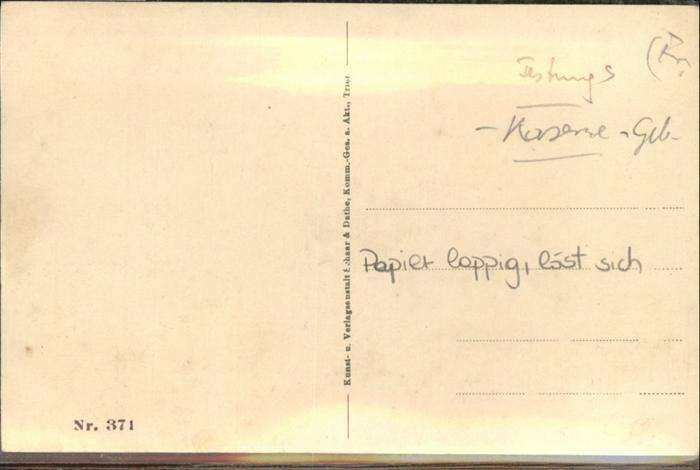 Festungs
- Kaserne - Geb.
Papier lappig, löst sich
Kunst- u. Verlagsanstalt Schaar & Dathe, Komm.-Ges. a. Akt., Trier
Nr. 371